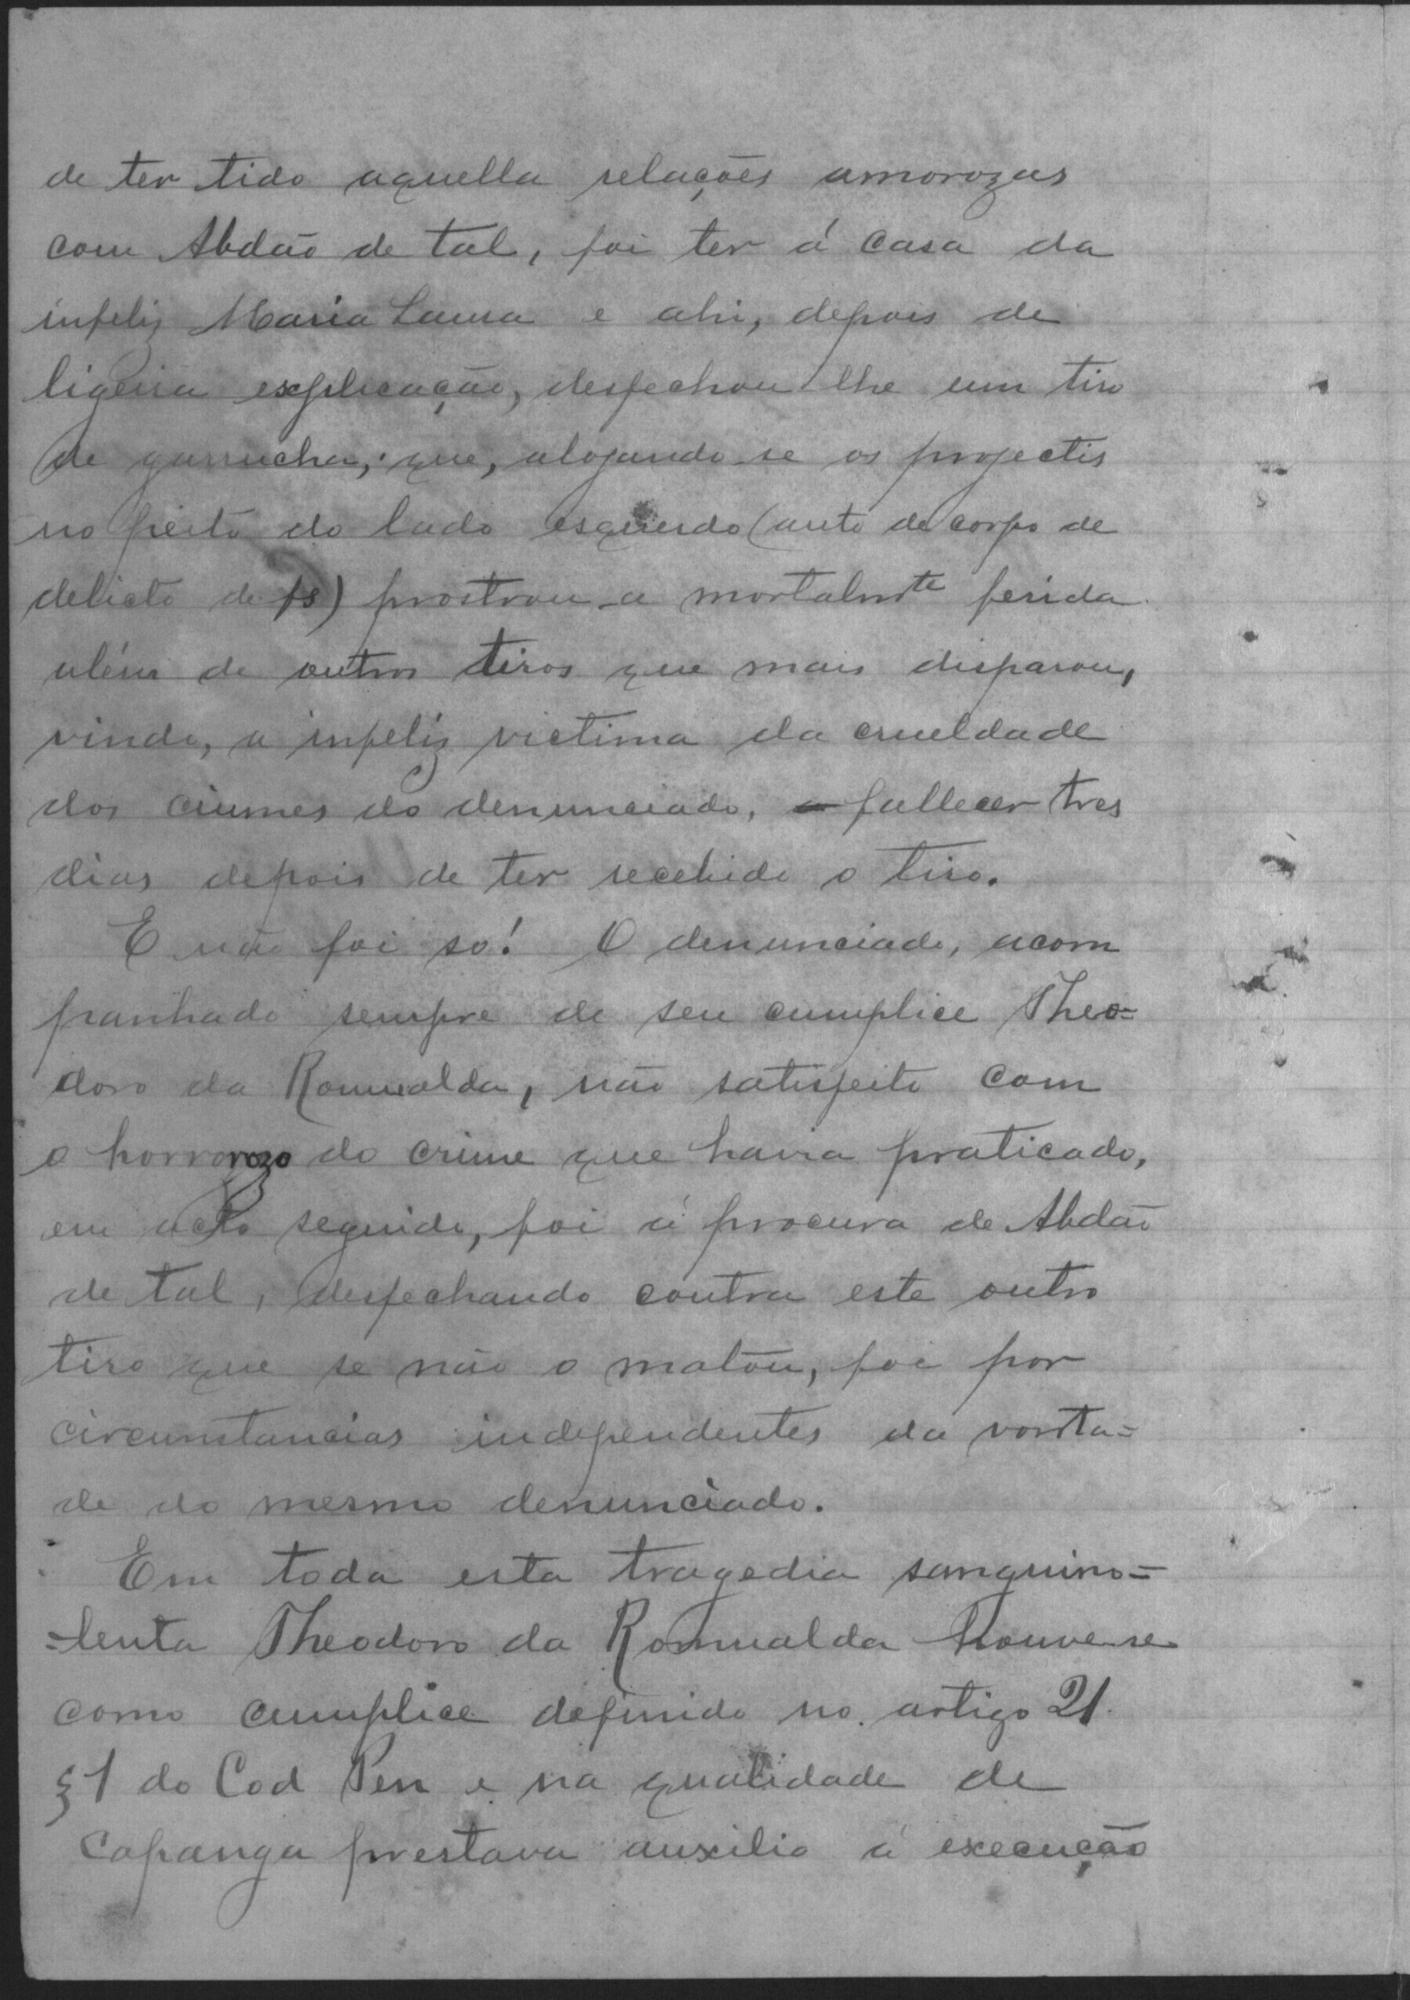 de ter tido aquella relações amorozas
com Abdão de tal, foi ter á casa da
infeliz Maria Laura e ahi, depois de
ligeira explicação, desfechou lhe um tiro
de garrucha, que, alojando-se os projectis
no peito do lado esquerdo (auto de corpo de
delicto de fs) prostrou-a mortalmte ferida
além de outros tiros que mais disparou,
vindo, a infeliz victima da crueldade
dos ciumes do denunciado, a fallecer tres
dias depois de ter recebido o tiro.
E não foi so! O denunciado, acom
panhado sempre de seu cumplice Theo=
doro da Romualda, não satisfeito com
o horrorozo do crime que havia praticado,
em acto seguido, foi á procura de Abdão
de tal, desfechando contra este outro
tiro que se não o matou, foi por
circumstancias independentes da vonta=
de do mesmo denunciado.
Em toda esta tragedia sanguino=
=lenta Theodoro da Romualda houve-se
como cumplice definido no artigo 21
§ 1 do Cod Pen e na qualidade de
capanga prestava auxilio á execução